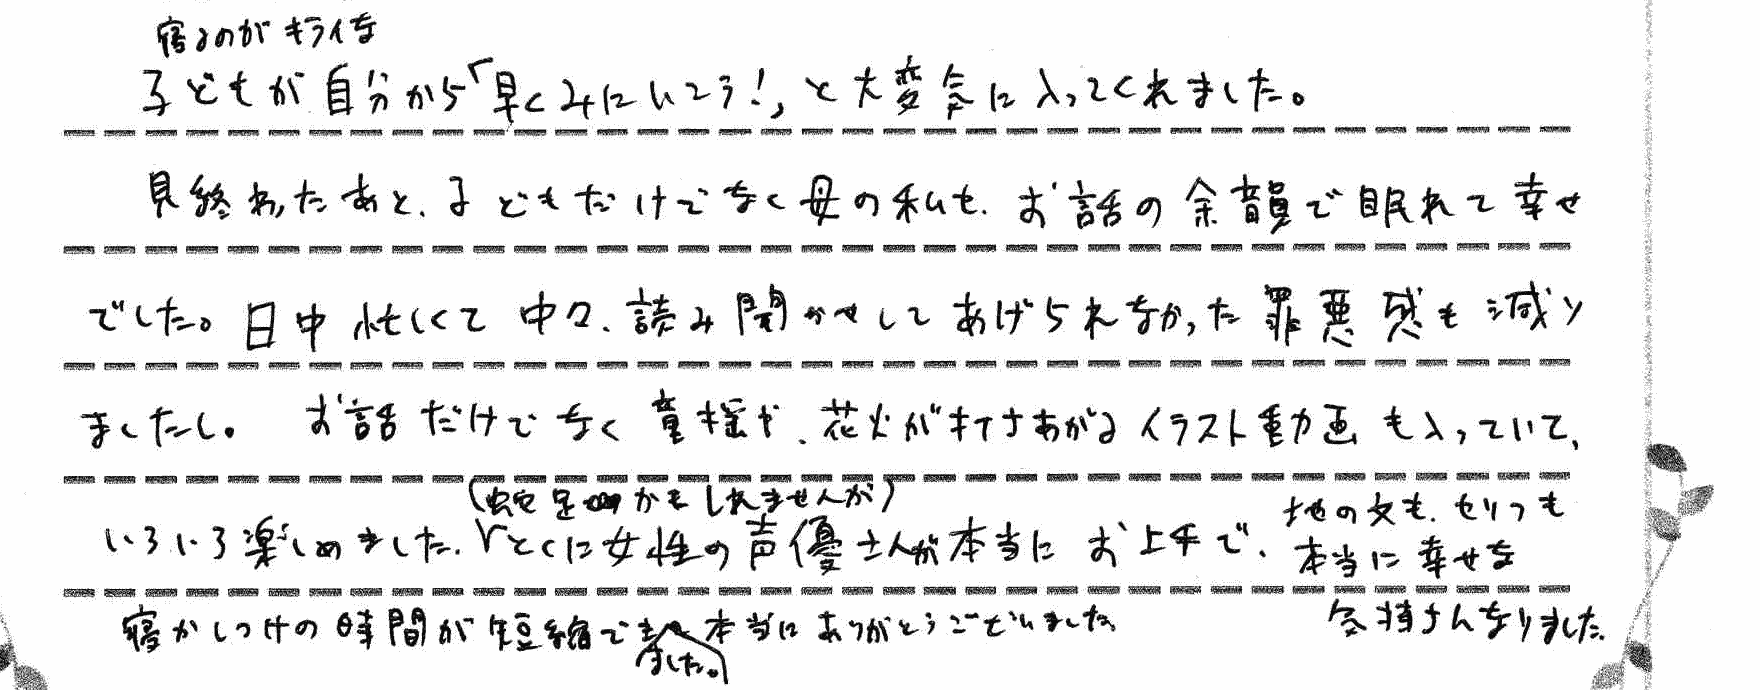 寝るのがキライな
子どもが自分から「早くみにいこう!」と大変気に入ってくれました。
見終わったあと、子どもだけでなく母の私も、お話の余韻で眠れて幸せ
でした。日中忙しくて中々、読み聞かせしてあげられなかった罪悪感も減り
ましたし。 お話だけでなく童謡や、花火が打ちあがるイラスト動画も入っていて、
(蛇足かもしれませんが)
いろいろ楽しめました。とくに女性の声優さんが本当にお上手で、
地の文も、セリフも
本当に幸せな
気持ちになりました。
寝かしつけの時間が短縮できました。本当にありがとうございました。